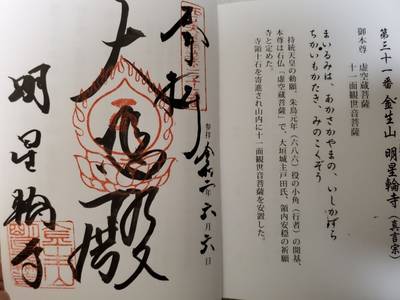 第三十一番 金生山 明星輪寺（真言宗）
御本尊 虚空蔵菩薩
十一面観世音菩薩
まいるみは、あかさかやまの、いしかはら
ちかいもかたき、みのこくぞう
持統天皇の勅願、朱鳥元年（六八六）役の小角（行者）の開基、
本尊は石仏「虚空蔵菩薩」で、大垣城主戸田氏、領内安穏の祈願
寺と定めた。
寺領十石を寄進され山内に十一面観世音菩薩を安置した。
奉拝
参拝 令和二年 六月六日
大悲殿
明星輪寺